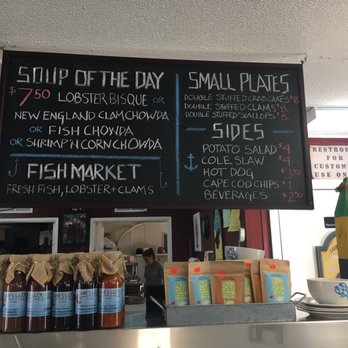 SOUP OF THE DAY
$7.50 LOBSTER BISQUE OR
NEW ENGLAND CLAM CHOWDA
OR FISH CHOWDA
OR SHRIMP 'N CORN CHOWDA
FISH MARKET
FRESH FISH, LOBSTER + CLAMS
SMALL PLATES
DOUBLE STUFFED CRAB CAKES $8
DOUBLE STUFFED CLAMS $8
DOUBLE STUFFED SCALLOPS $5
SIDES
POTATO SALAD $4
COLE SLAW $4
HOT DOG $3.50
CAPE COD CHIPS $1
BEVERAGES $2.50
RESTROOM
FOR
CUSTOME
USE ON